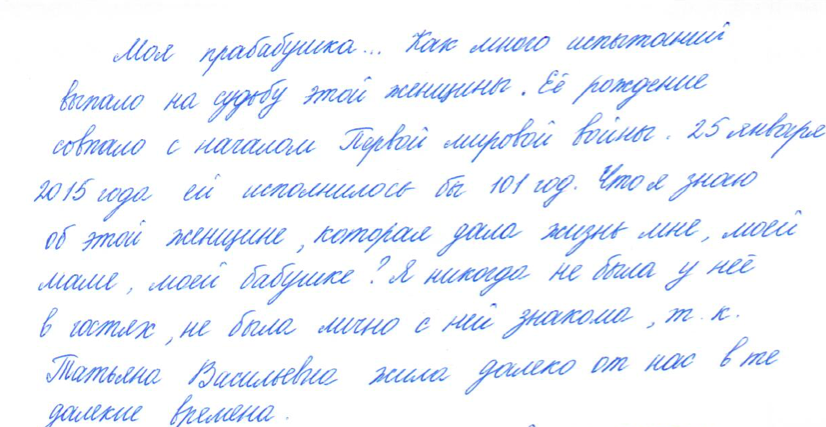 Моя прабабушка... Как много испытаний
выпало на судьбу этой женщины. Её рождение
совпало с началом Первой мировой войны. 25 января
2015 года ей исполнилось бы 101 год. Что я знаю
об этой женщине, которая дала жизнь мне, моей
маме, моей бабушке? Я никогда не была у неё
в гостях, не была лично с ней знакома, т.к.
Татьяна Васильевна жила далеко от нас в те
далекие времена.